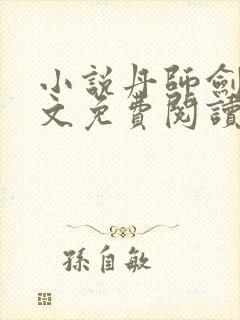 小說丹師劍
文免費閱讀
孫自敏